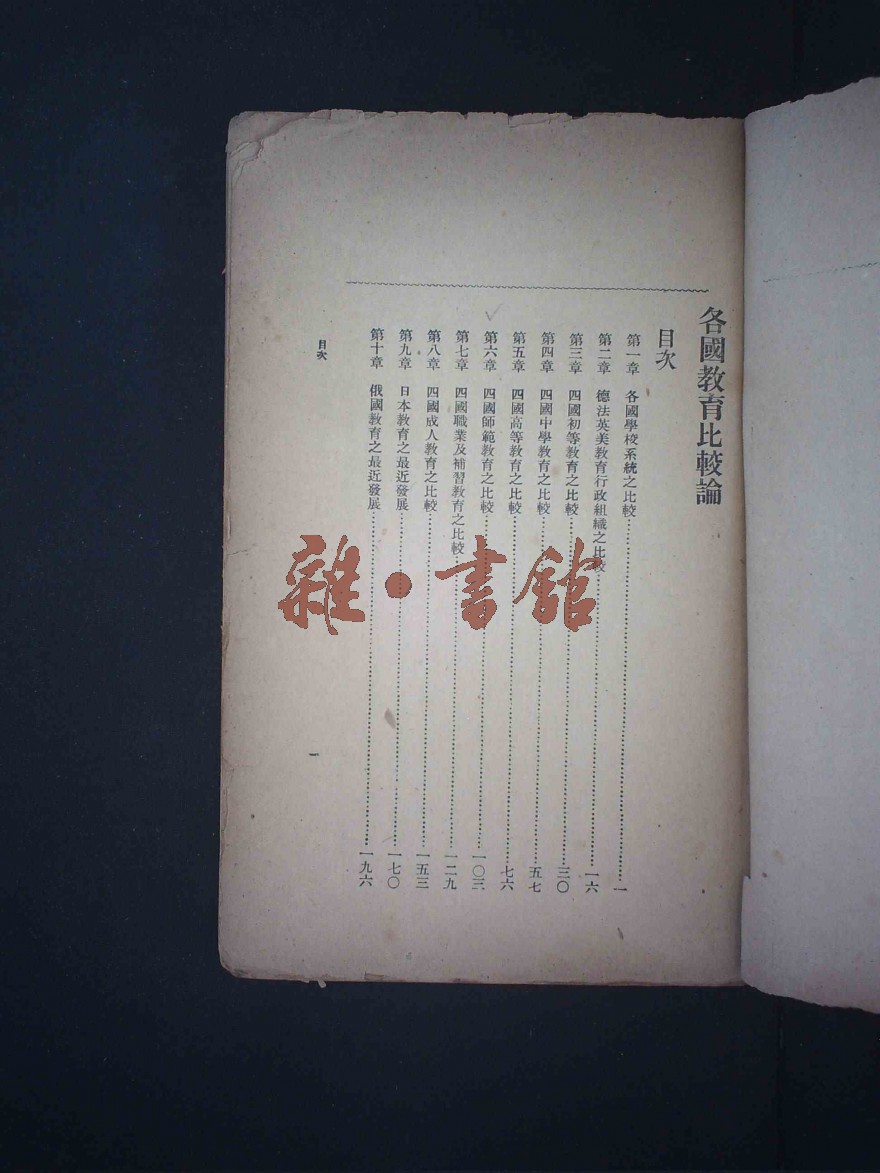 各國教育比較論
目次
第一章 各國學校系統之比較……一
第二章 德法英美教育行政組織之比較……一六
第三章 四國初等教育之比較……三〇
第四章 四國中學教育之比較……五七
第五章 四國高等教育之比較……七六
第六章 四國師範教育之比較……一〇三
第七章 四國職業及補習教育之比較……一二九
第八章 四國成人教育之比較……一五三
第九章 日本教育之最近發展……一七〇
第十章 俄國教育之最近發展……一九六
目次
一
雜·書館